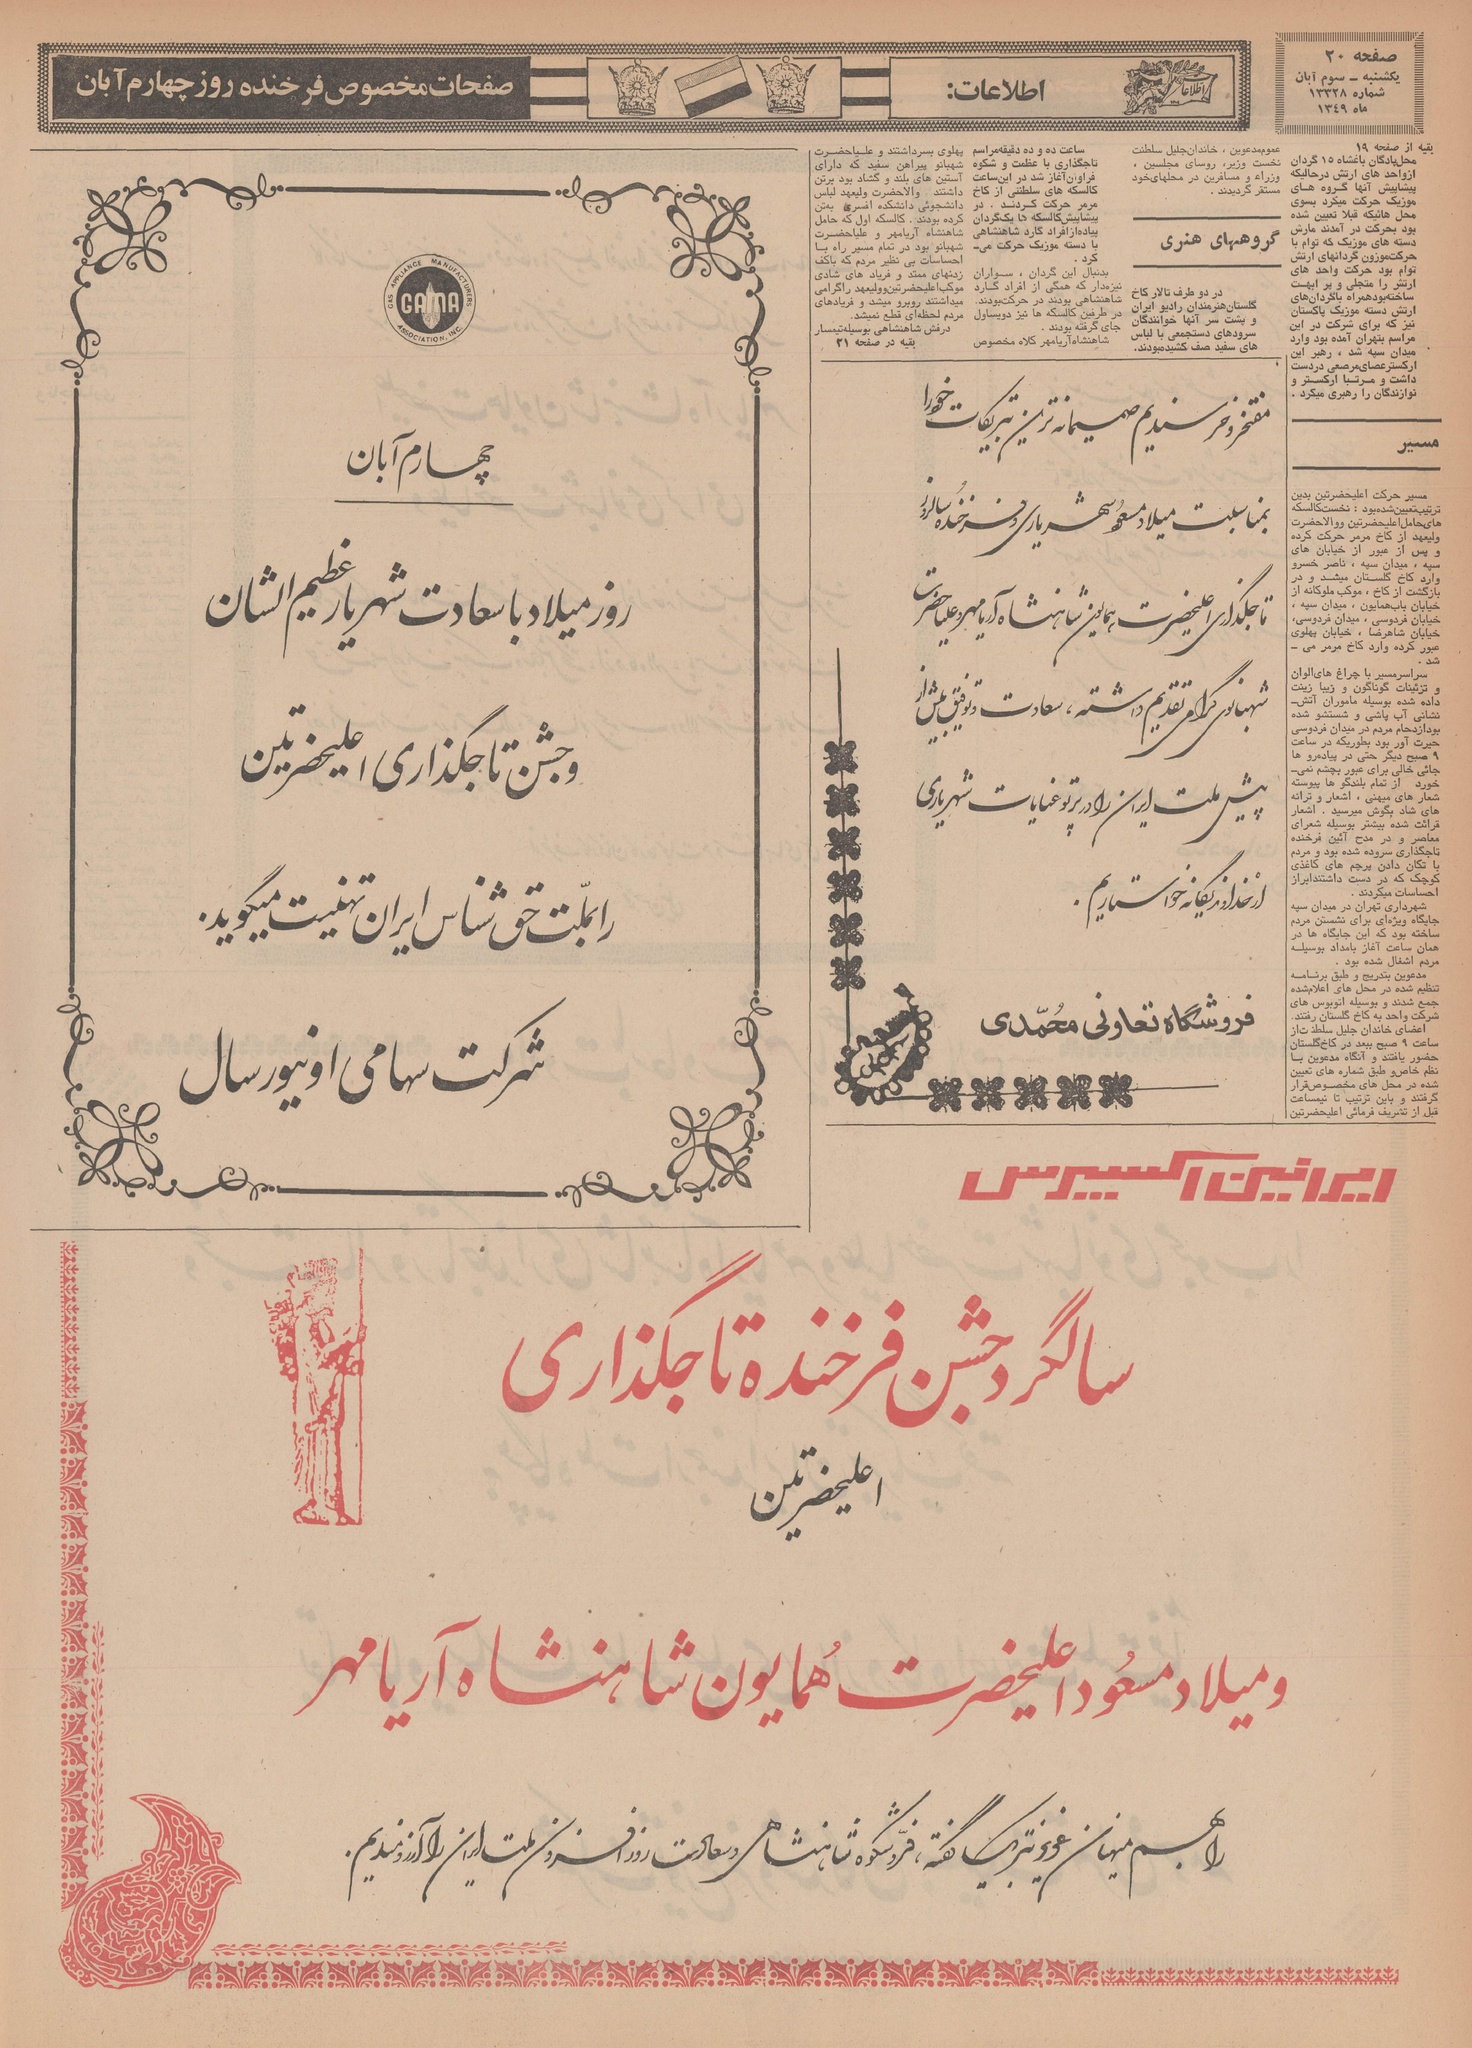 صفحه ۲۰
یکشنبه ـ سوم آبان
شماره ۱۳۳۲۸
ماه ۱۳۴۹
اطلاعات
اطلاعات:
صفحات مخصوص فرخنده روز چهارم آبان
بقیه از صفحه ۱۹
محل پادگان باغشاه ۱۵ گردان
از واحد های ارتش درحالیکه
پیشاپیش آنها گروه های
موزیک حرکت میکرد بسوی
محل هائیکه قبلا تعیین شده
بود بحرکت در آمدند مارش
دسته های موزیک که توام با
حرکت موزون گردانهای ارتش
توام بود حرکت واحد های
ارتش را متجلی و پر ابهت
ساخته بود همراه باگردان‌های
ارتش دسته موزیک پاکستان
نیز که برای شرکت در این
مراسم بتهران آمده بود وارد
میدان سپه شد ، رهبر این
ارکستر عصای مرصعی دردست
داشت و مرتبا ارکستر و
نوازندگان را رهبری میکرد .
مسیر
مسیر حرکت اعلیحضرتین بدین
ترتیب تعیین شده بود : نخست کالسکه
های حامل اعلیحضرتین و والاحضرت
ولیعهد از کاخ مرمر حرکت کرده
و پس از عبور از خیابان های
سپه ، میدان سپه ، ناصر خسرو
وارد کاخ گلستان میشد و در
بازگشت از کاخ ، موکب ملوکانه از
خیابان باب همایون ، میدان سپه ،
خیابان فردوسی ، میدان فردوسی،
خیابان شاهرضا ، خیابان پهلوی
عبور کرده وارد کاخ مرمر می ـ
شد .
سراسر مسیر با چراغ های الوان
و تزئینات گوناگون و زیبا زینت
داده شده بوسیله ماموران آتش‌ـ
نشانی آب پاشی و شستشو شده
بود ازدحام مردم در میدان فردوسی
حیرت آور بود بطوریکه در ساعت
۹ صبح دیگر حتی در پیاده‌رو ها
جائی خالی برای عبور بچشم نمی‌ـ
خورد از تمام بلندگو ها پیوسته
شعار های میهنی ، اشعار و ترانه
های شاد بگوش میرسید . اشعار
قرائت شده بیشتر بوسیله شعرای
معاصر و در مدح آئین فرخنده
تاجگذاری سروده شده بود و مردم
با تکان دادن پرچم های کاغذی
کوچک که در دست داشتند ابراز
احساسات میکردند .
شهرداری تهران در میدان سپه
جایگاه ویژه‌ای برای نشستن مردم
ساخته بود که این جایگاه ها در
همان ساعت آغاز بامداد بوسیله
مردم اشغال شده بود .
مدعوین بتدریج و طبق برنامه
تنظیم شده در محل های اعلام‌شده
جمع شدند و بوسیله اتوبوس های
شرکت واحد به کاخ گلستان رفتند.
اعضای خاندان جلیل سلطنت از
ساعت ۹ صبح ببعد در کاخ گلستان
حضور یافتند و آنگاه مدعوین با
نظم خاص و طبق شماره های تعیین
شده در محل های مخصوص قرار
گرفتند و باین ترتیب تا نیمساعت
قبل از تشریف فرمائی اعلیحضرتین
عموم مدعوین ، خاندان جلیل سلطنت
نخست وزیر، روسای مجلسین ،
وزراء و مسافرین در محلهای خود
مستقر گردیدند .
گروههای هنری
در دو طرف تالار کاخ
گلستان هنرمندان رادیو ایران
و پشت سر آنها خوانندگان
سرودهای دستجمعی با لباس
های سفید صف کشیده بودند.
ساعت ده و ده دقیقه مراسم
تاجگذاری با عظمت و شکوه
فراوان آغاز شد در این ساعت
کالسکه های سلطنتی از کاخ
مرمر حرکت کردند . در
پیشاپیش کالسکه ها یک گردان
پیاده از افراد گارد شاهنشاهی
با دسته موزیک حرکت می‌ـ
کرد .
بدنبال این گردان ، سواران
نیزه‌دار که همگی از افراد گارد
شاهنشاهی بودند در حرکت بودند.
در طرفین کالسکه ها نیز دویساول
جای گرفته بودند .
شاهنشاه آریامهر کلاه مخصوص
پهلوی بسر داشتند و علیاحضرت
شهبانو پیراهن سفید که دارای
آستین های بلند و گشاد بود برتن
داشتند . والاحضرت ولیعهد لباس
دانشجوئی دانشکده افسری به‌تن
کرده بودند . کالسکه اول که حامل
شاهنشاه آریامهر و علیاحضرت
شهبانو بود در تمام مسیر راه با
احساسات بی نظیر مردم که باکف
زدنهای ممتد و فریاد های شادی
موکب اعلیحضرتین و ولیعهد را گرامی
میداشتند روبرو میشد و فریادهای
مردم لحظه‌ای قطع نمیشد.
درفش شاهنشاهی بوسیله تیمسار
بقیه در صفحه ۲۱
مفتخر و خرسندیم صمیمانه ترین تبریکات خود را
بمناسبت میلاد مسعود شهریاری و فرخنده سالروز
تاجگذاری اعلیحضرت همایون شاهنشاه آریامهر و علیاحضرت
شهبانوی گرامی تقدیم داشته ، سعادت و توفیق بیش از
پیش ملت ایران را در پرتو عنایات شهریاری
از خداوند یگانه خواستاریم .
فروشگاه تعاونی محمّدی
GAS APPLIANCE MANUFACTURERS
GAMA
ASSOCIATION, INC.
چهارم آبان
روز میلاد با سعادت شهریار عظیم الشان
و جشن تاجگذاری اعلیحضرتین
را بملّت حق شناس ایران تهنیت میگوید.
شرکت سهامی اونیورسال
ایرانین اکسپرس
سالگرد جشن فرخنده تاجگذاری
اعلیحضرتین
و میلاد مسعود اعلیحضرت همایون شاهنشاه آریامهر
را بهم میهنان عزیز تبریک گفته ، فرّ و شکوه شاهنشاهی و سعادت روز افزون ملت ایران را آرزومندیم.